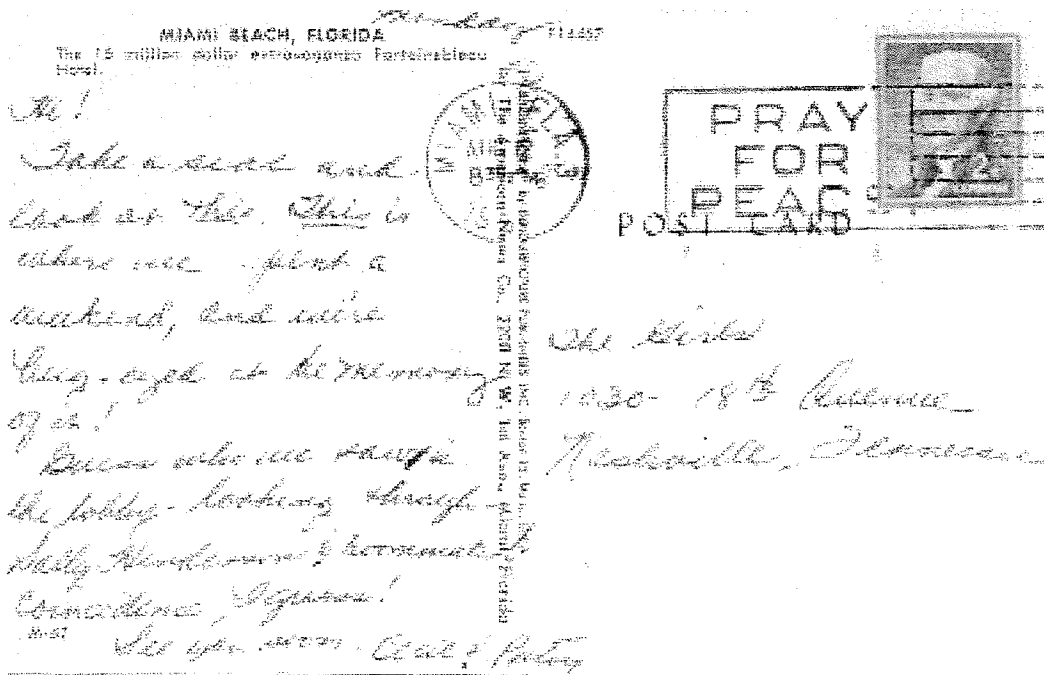 Sunday
MIAMI BEACH, FLORIDA
The 15 million dollar extravaganza Fontainebleau
Hotel.
Hi!
Take a seat and
look at this. This is
where we spent a
weekend, and we're
bug-eyed at the memory
of it!
Guess who we saw in
the lobby - looking through -
Sally Henderson & roommate
Coincidence, I guess!
See you soon.
M-57
MIAMI, FLA.
PRAY
FOR
PEACE
POST CARD
The Girls
1030 - 18th Avenue
Nashville, Tennessee